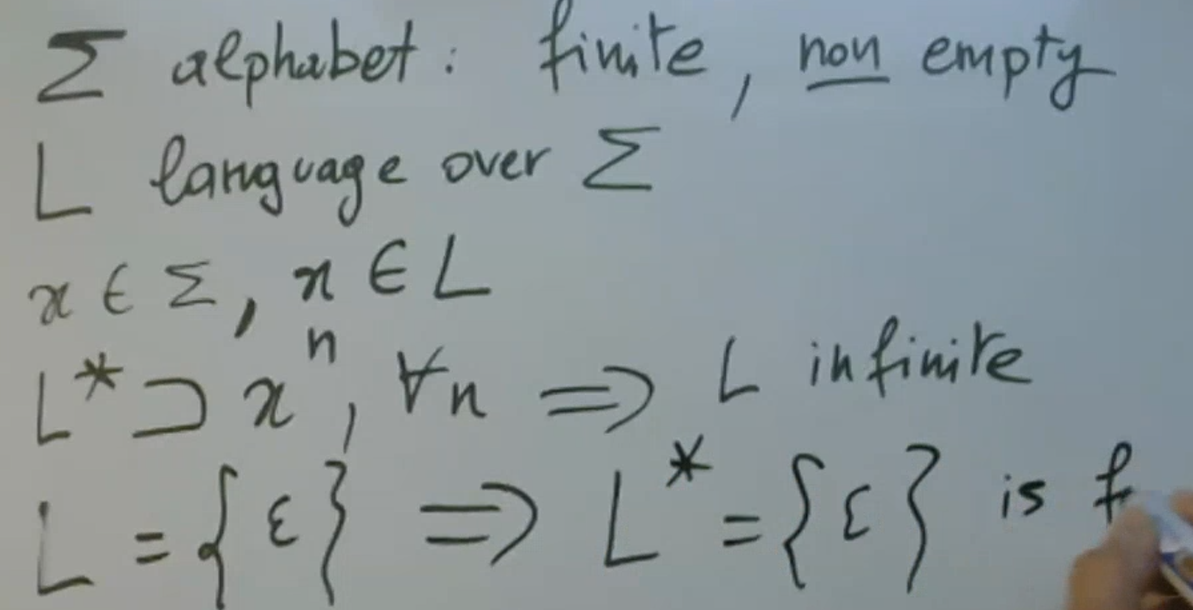 Σ alphabet: finite, non empty
L language over Σ
x ∈ Σ, x ∈ L
L* ⊃ xⁿ, ∀n ⇒ L infinite
L = {ε} ⇒ L* = {ε} is